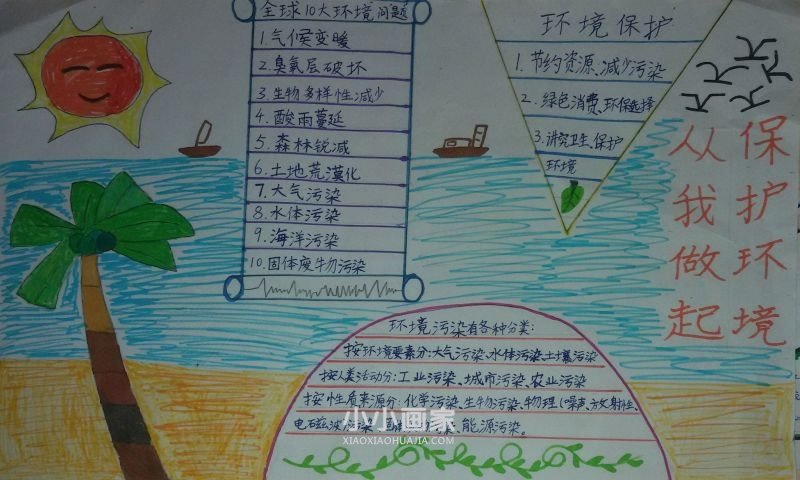 全球10大环境问题
1.气候变暖
2.臭氧层破坏
3.生物多样性减少
4.酸雨蔓延
5.森林锐减
6.土地荒漠化
7.大气污染
8.水体污染
9.海洋污染
10.固体废物污染
环境保护
1.节约资源、减少污染
2.绿色消费、环保选择
3.讲究卫生、保护
环境
保护环境
从我做起
环境污染有各种分类:
按环境要素分:大气污染、水体污染、土壤污染
按人类活动分:工业污染、城市污染、农业污染
按性质来源分:化学污染、生物污染、物理(噪声、放射性、
电磁波 污染、能源污染。
小小画家
XIAOXIAOHUAJIA.COM